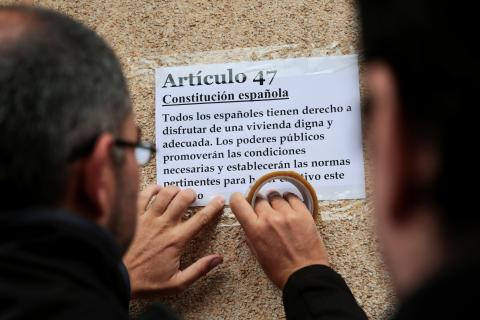 Artículo 47
Constitución española
Todos los españoles tienen derecho a
disfrutar de una vivienda digna y
adecuada. Los poderes públicos
promoverán las condiciones
necesarias y establecerán las normas
pertinentes para este